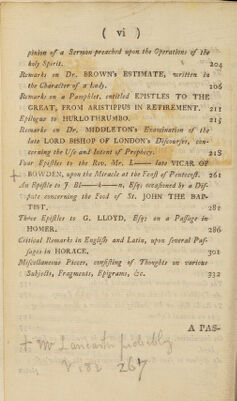 ( vi )
pinion of a Sermon preached upon the Operations of the
holy Spirit. 204
Remarks on Dr. BROWN's ESTIMATE, written in
the Character of a Lady. 206
Remarks on a Pamphlet, entitled EPISTLES TO THE
GREAT, FROM ARISTIPPUS IN RETIREMENT. 211
Epilogue to HURLOTHRUMBO. 215
Remarks on Dr. MIDDLETON's Examination of the
late LORD BISHOP OF LONDON's Discourses, con-
cerning the Use and Intent of Prophecy. 218
Four Epistles to the Rev. Mr. L—— late VICAR OF
+ BOWDEN, upon the Miracle at the Feast of Pentecost. 261
An Epistle to J. Bl—k—n, Esq; occasioned by a Dis-
pute concerning the Food of St. JOHN THE BAP-
TIST. 282
Three Epistles to G. LLOYD, Esq; on a Passage in
HOMER. 286
Critical Remarks in English and Latin, upon several Pas-
sages in HORACE. 302
Miscellaneous Pieces, consisting of Thoughts on various
Subjects, Fragments, Epigrams, &c. 332
A PAS-
+ Mr Lancaster probably
V 182 267